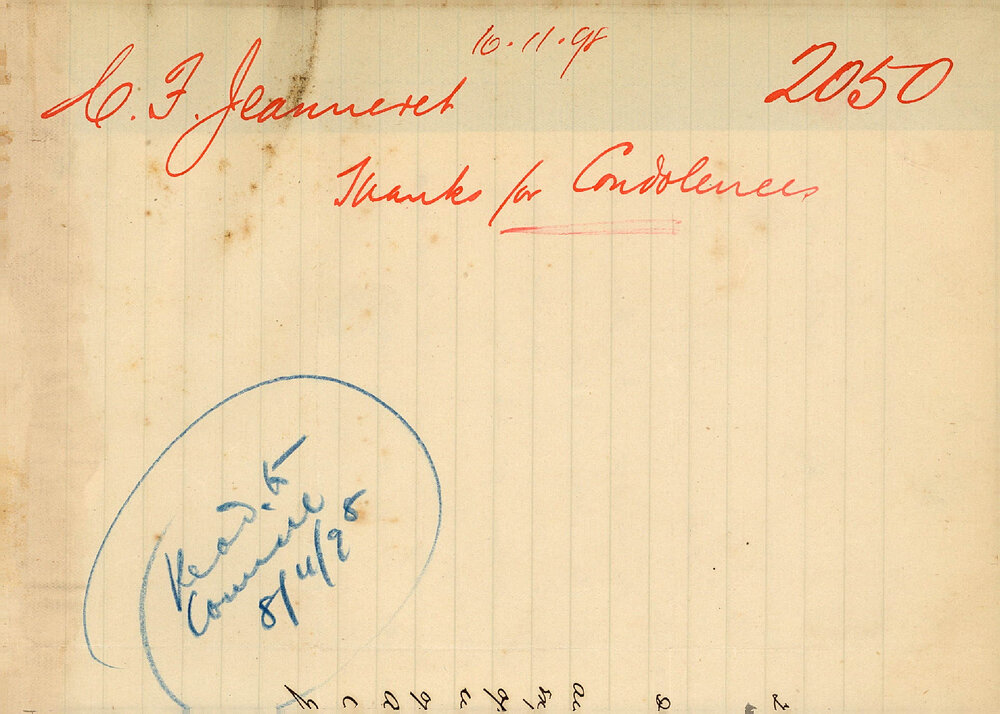 10.11.98
C. F. Jeanneret 2050
Thanks for Condolences
Read to
Council
8/11/98